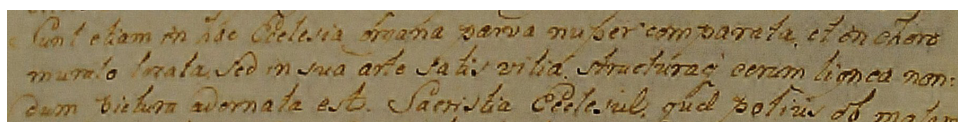 Sunt etiam in hac Ecclesia organa parva nuper comparata, et in choro
murato locata, sed in sua arte satis vitia, structuraq; eorum lignea non-
dum pictura adornata est. Sacristia Ecclesiæ, quæ potius ob malam